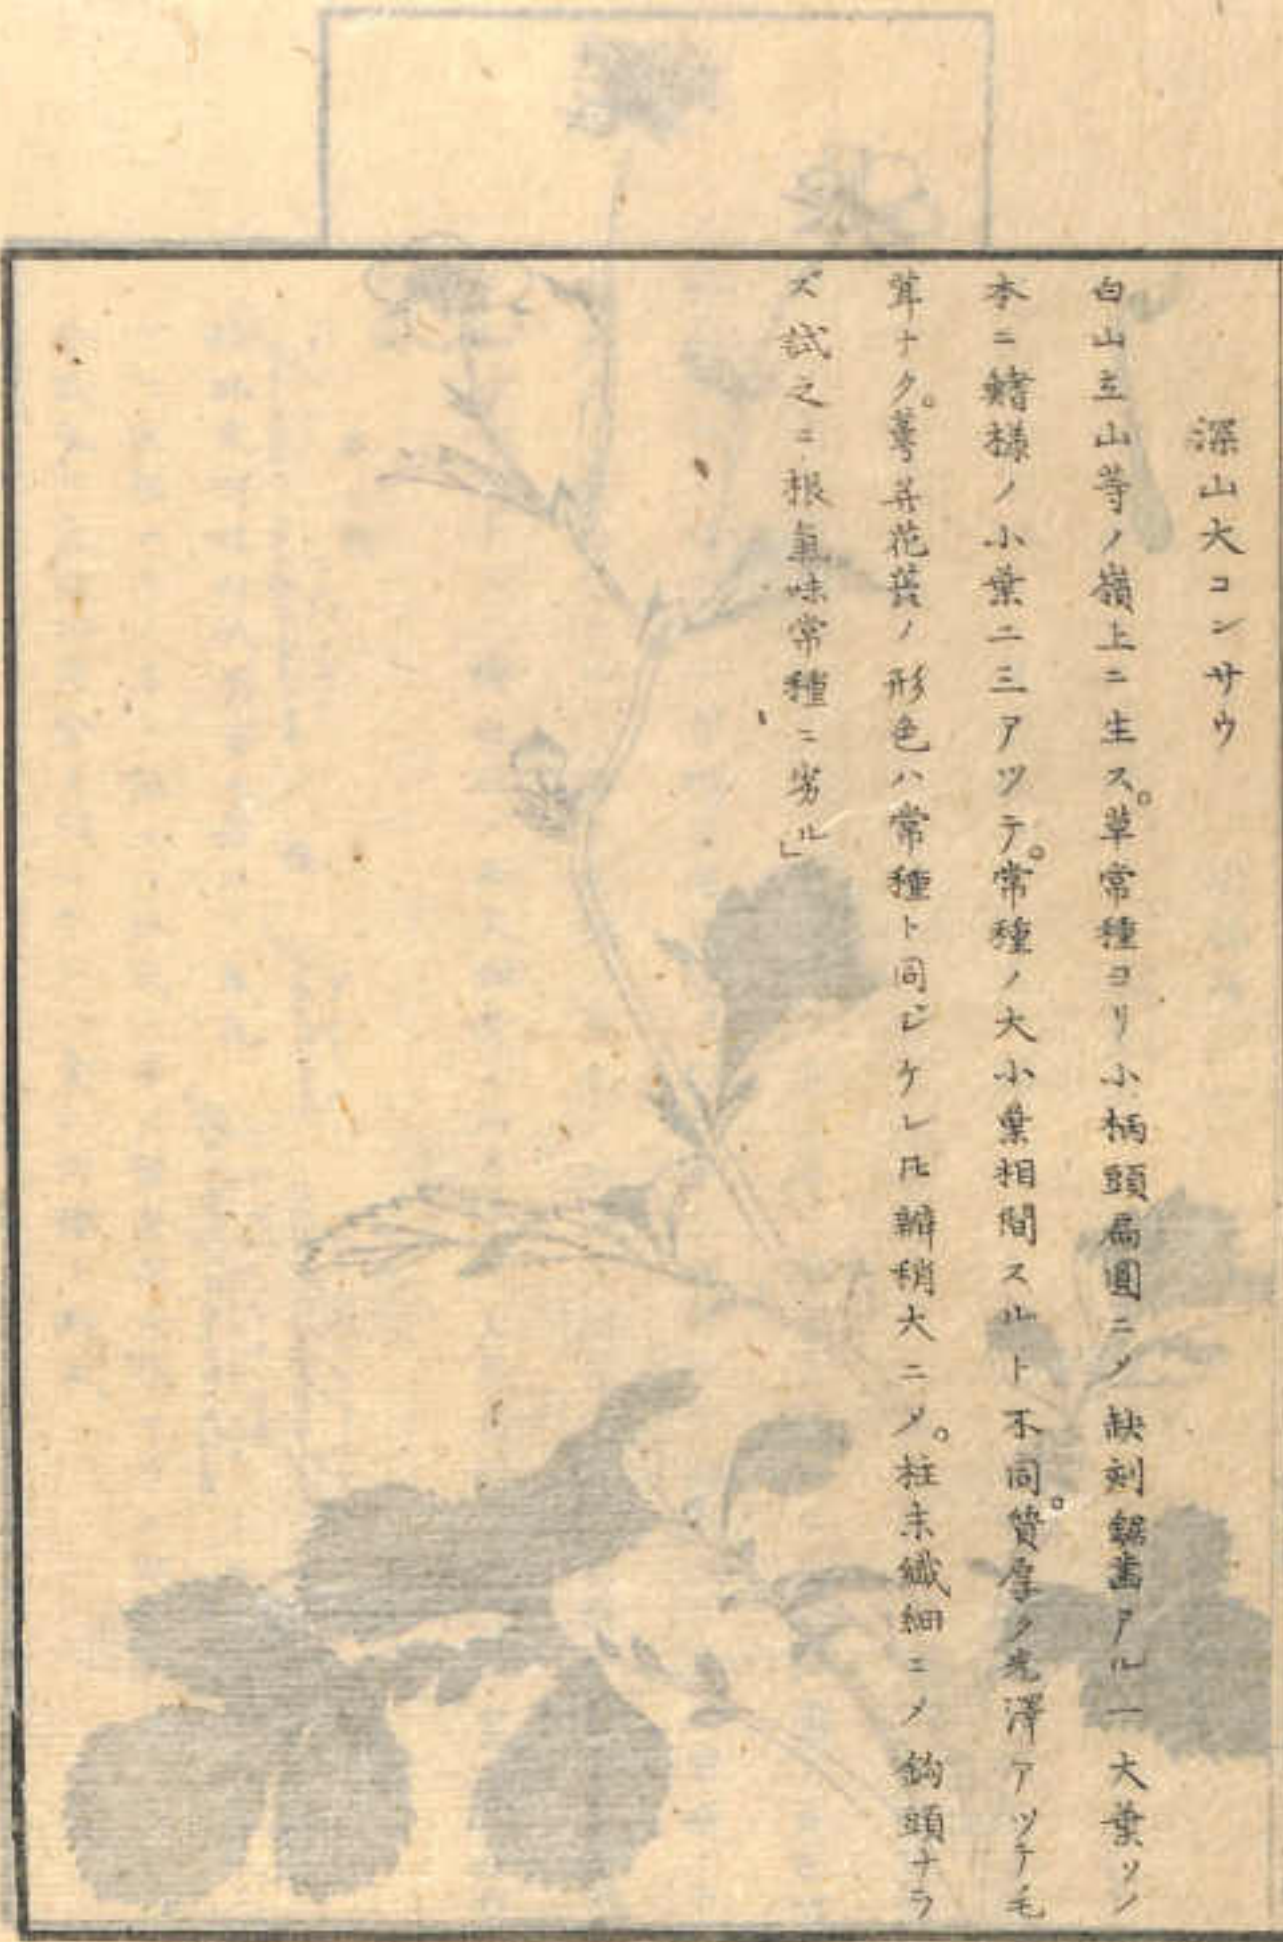 深山大コンサウ
白山立山等ノ嶺上ニ生ス。草常種ヨリ小柄頭扁圓ニ〆缺刻鋸齒アル一大葉ソノ
本ニ鰭様ノ小葉二三アツテ。常種ノ大小葉相間スルト不同。質厚ク光澤アツテ毛
茸ナク。萼并花蕊ノ形色ハ常種ト同ジケレ𪜈瓣稍大ニ〆。柱末纎細ニ〆鈎頭ナラ
ズ試之ニ根氣味常種ニ劣ル」